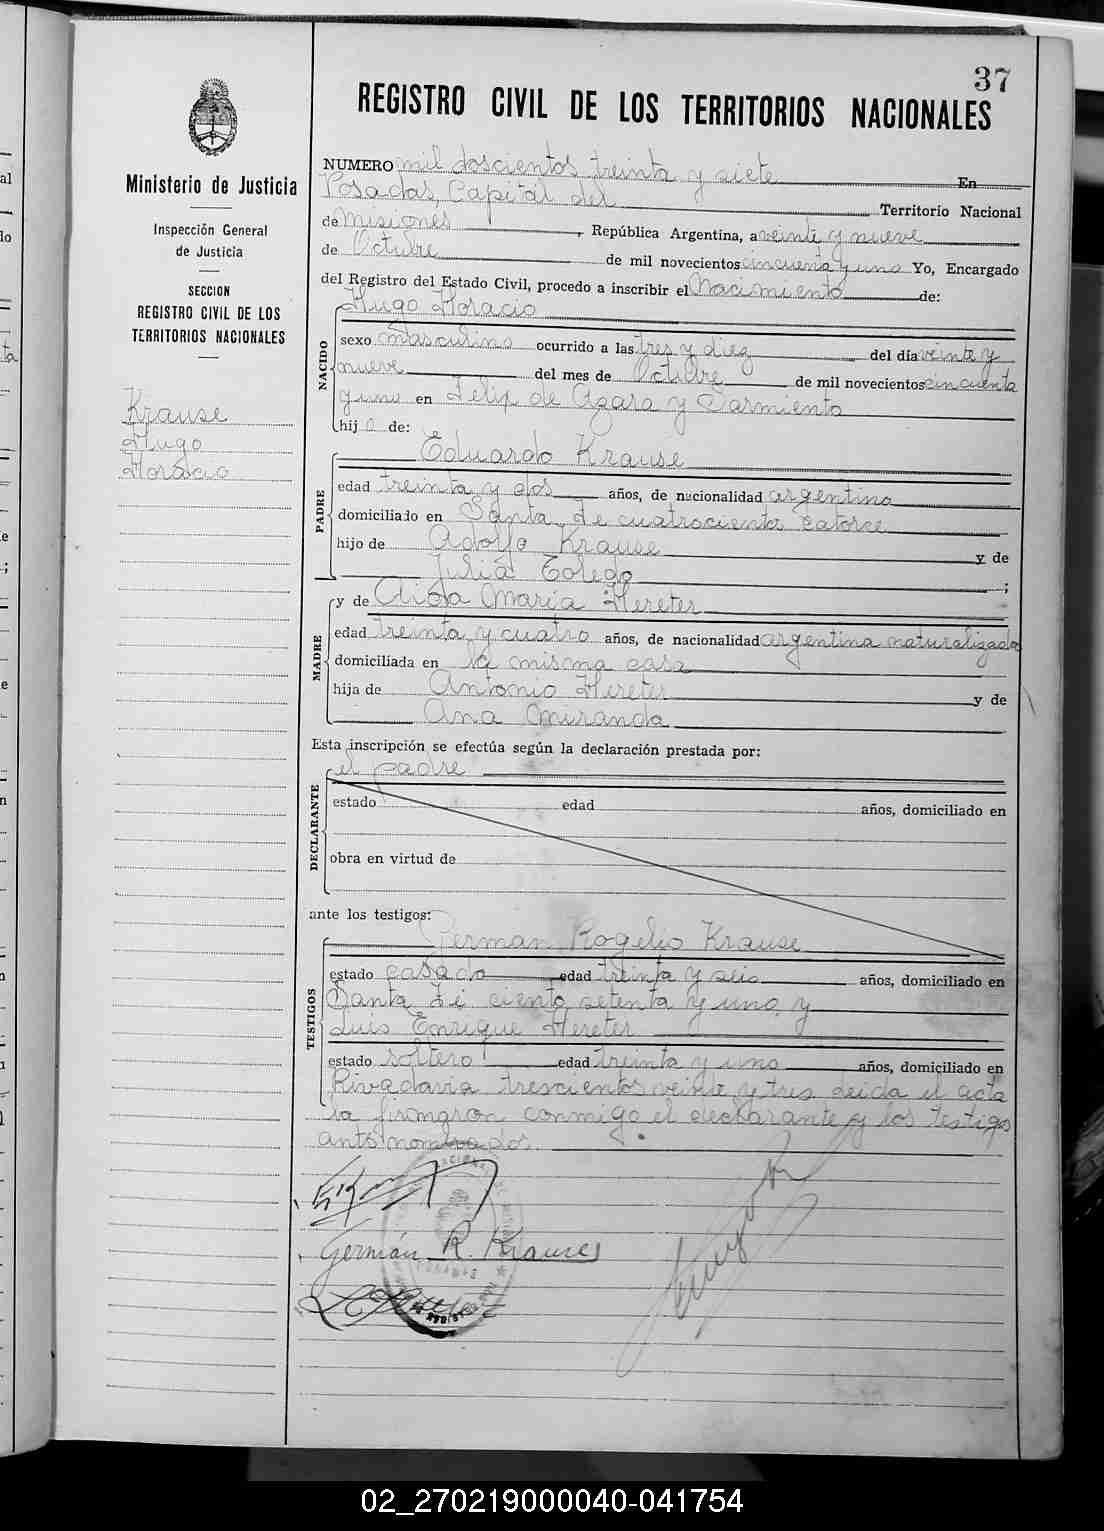 37
REGISTRO CIVIL DE LOS TERRITORIOS NACIONALES
Ministerio de Justicia
Inspección General
de Justicia
SECCION
REGISTRO CIVIL DE LOS
TERRITORIOS NACIONALES
Krause
Hugo
Horacio
NUMERO mil doscientos treinta y siete En
Posadas, Capital del Territorio Nacional
de Misiones, República Argentina, a veinte y nueve
de Octubre de mil novecientos cincuenta y uno Yo, Encargado
del Registro del Estado Civil, procedo a inscribir el Nacimiento de:
Hugo Horacio
NACIDO
sexo masculino ocurrido a las tres y diez del día veinte y
nueve del mes de Octubre de mil novecientos cincuenta
y uno en Felix de Azara y Sarmiento
hijo de:
Eduardo Krause
PADRE
edad treinta y dos años, de nacionalidad argentina
domiciliado en Santa Fe cuatrocienta catorce
hijo de Adolfo Krause y de
Julia Toledo ;
y de Aida Maria Hereter
MADRE
edad treinta y cuatro años, de nacionalidad argentina naturalizada
domiciliada en la misma casa
hija de Antonio Hereter y de
Ana Miranda
Esta inscripción se efectúa según la declaración prestada por:
el padre
DECLARANTE
estado edad años, domiciliado en
obra en virtud de
ante los testigos:
German Rogelio Krause
TESTIGOS
estado casado edad treinta y seis años, domiciliado en
Santa Fe ciento setenta y uno, y
Luis Enrique Hereter
estado soltero edad treinta y uno años, domiciliado en
Rivadavia trescientos veinte y tres leida el acta
la firmaron conmigo el declarante y los testigos
antes nombrados.
Germán R. Krause
02_270219000040-041754